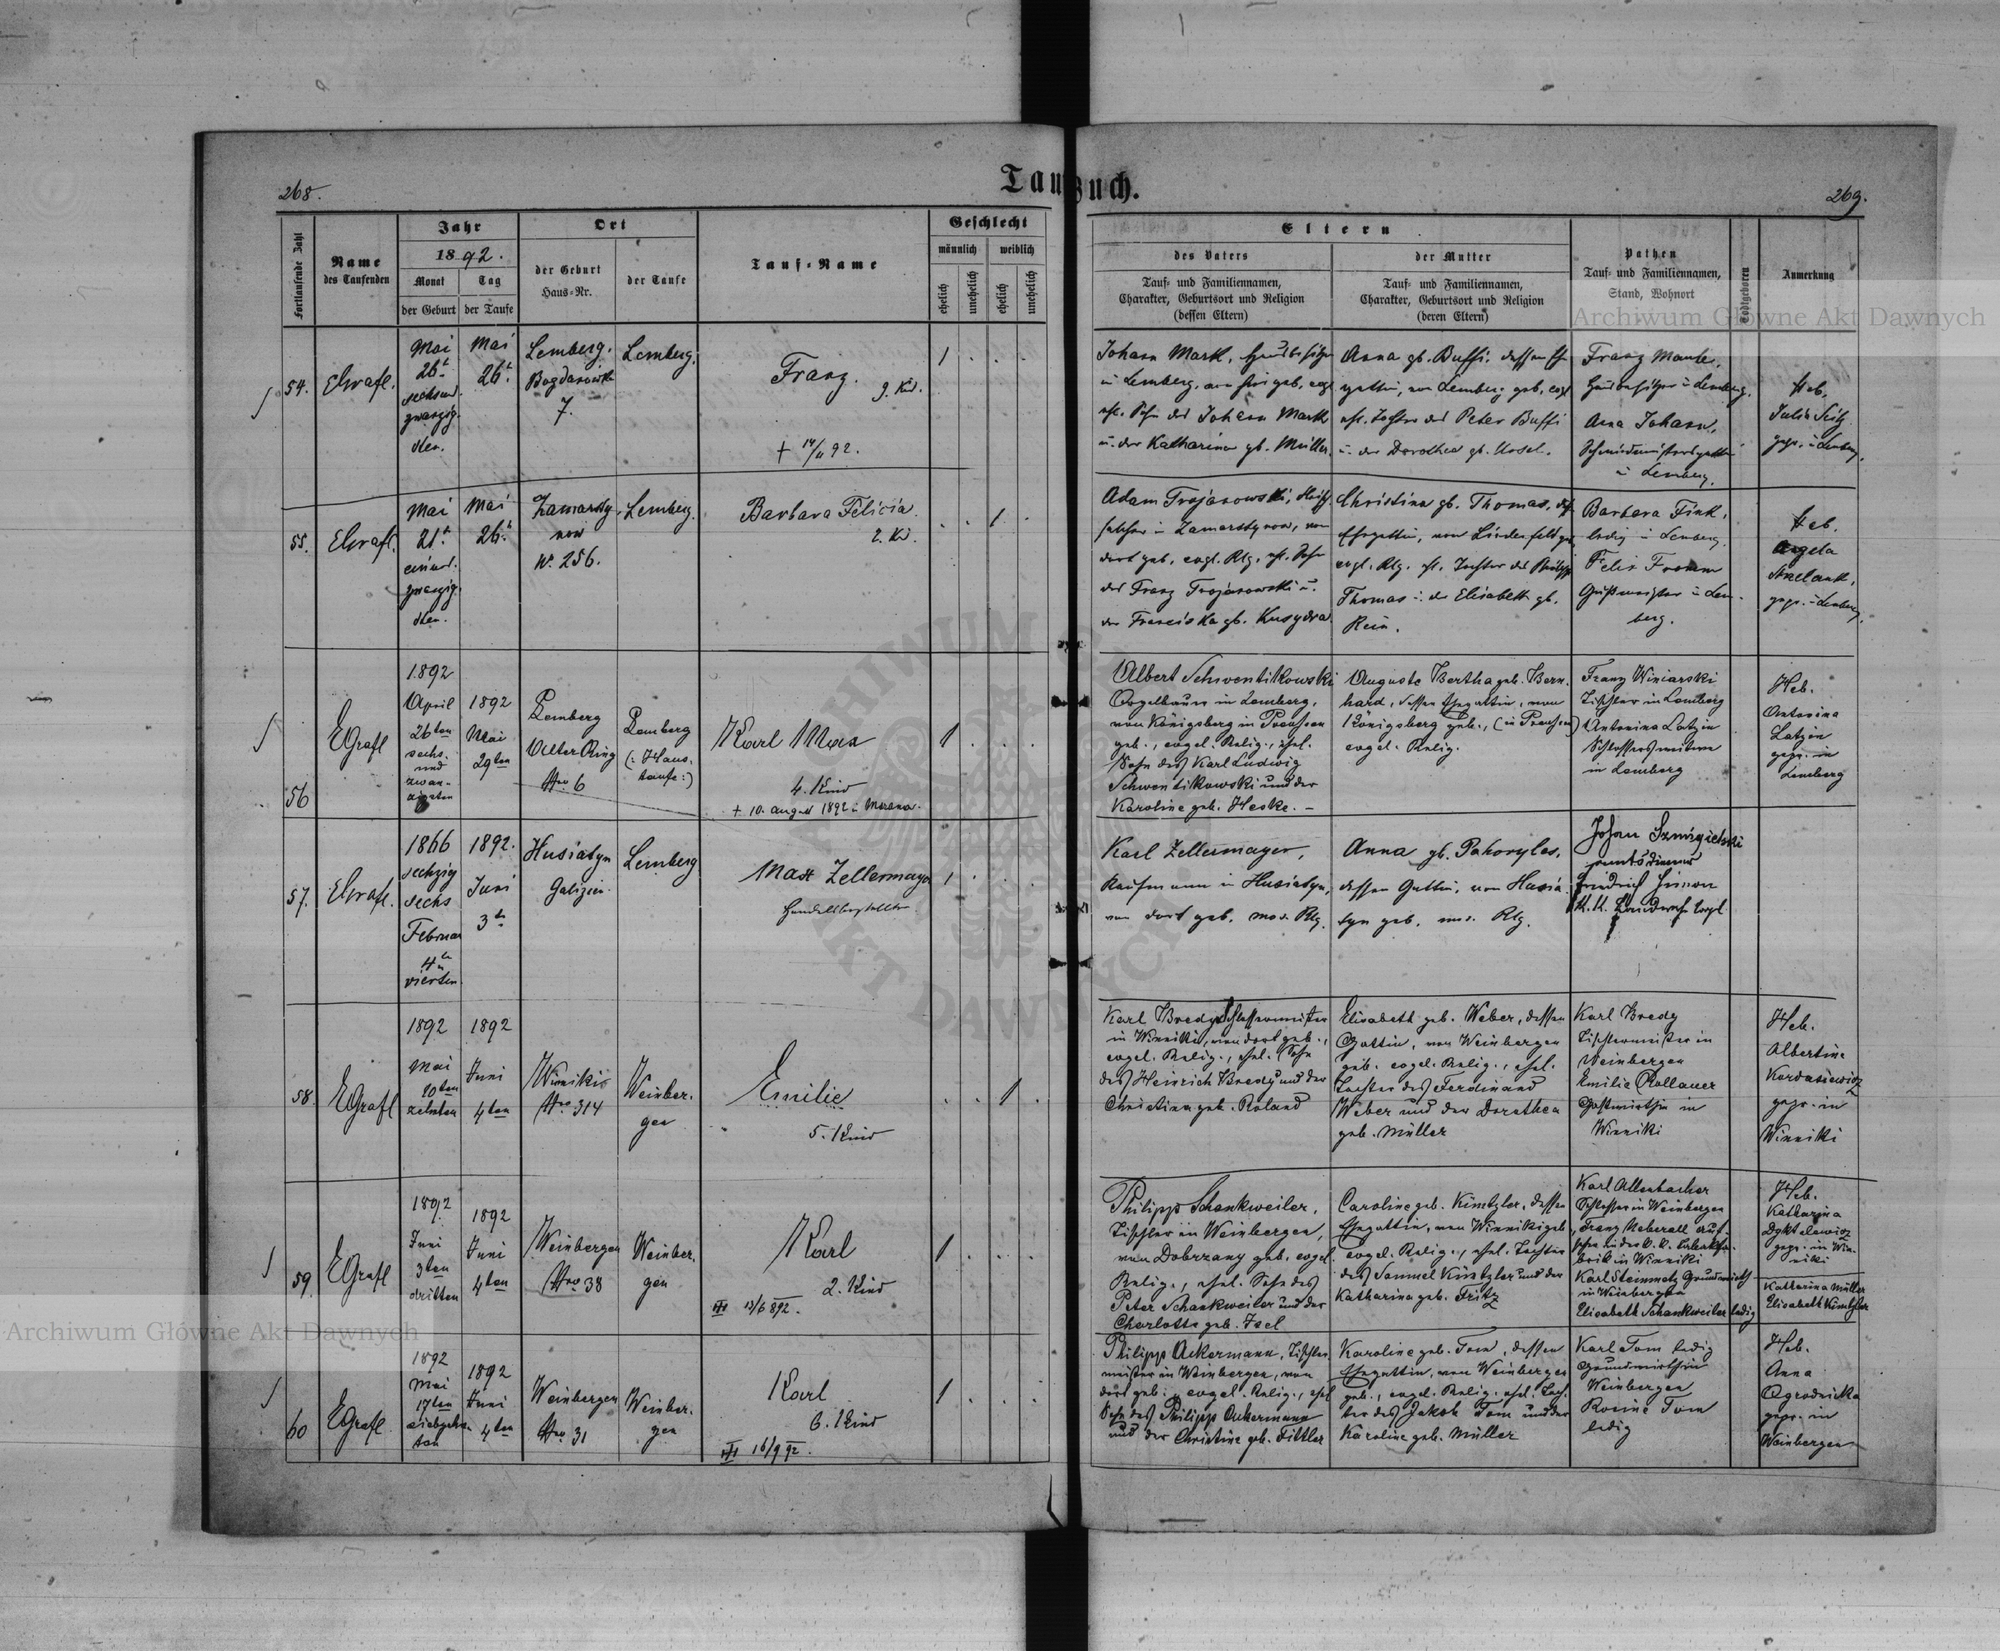 268.
Taufbuch.
269.
Fortlaufende Zahl
Name
des Taufenden
Jahr
1892.
Monat
der Geburt
Tag
der Taufe
Ort
der Geburt
Haus-Nr.
der Taufe
Tauf-Name
Geschlecht
männlich
weiblich
ehelich
unehelich
ehelich
unehelich
Eltern
des Vaters
Tauf- und Familiennamen,
Charakter, Geburtsort und Religion
(dessen Eltern)
der Mutter
Tauf- und Familiennamen,
Charakter, Geburtsort und Religion
(deren Eltern)
Pathen
Tauf- und Familiennamen,
Stand, Wohnort
Todtgeboren
Anmerkung
Archiwum Główne Akt Dawnych
54.
EGrafl.
Mai
26t
sechsund
zwanzig
sten.
Mai
26t
Lemberg.
7.
Lemberg.
Franz.
9. Kd.
1
Johann Markl,
in Lemberg,
des Johann Markl
u. der Katharina gb. Müller.
Anna gb. Buffi,
Tochter des Peter Buffi
u. der Dorothea gb.
Franz
Hausbesitzer in Lemberg.
Anna Johann,
in Lemberg.
Heb.
55.
EGrafl.
Mai
21t
einund
zwanzig
sten.
Mai
26t
Zamarsty
now
N. 256.
Lemberg.
Barbara Felicia
2. Kd.
1
Adam Trojanowski,
in Zamarstynow, von
dort geb., evgl. Rlg. ehl. Sohn
des Franz Trojanowski u.
der Franciska gb. Kusydra.
Christina gb. Thomas,
Ehegattin, von Linderfeld
evgl. Rlg. ehl. Tochter des Philipp
Thomas u. der Elisabeth gb.
Rein.
Barbara Fink,
ledig in Lemberg.
Felix
in Lem-
berg.
Heb.
Angela
56
EGrafl
1892
April
26ten
sechs
und
zwan-
zigsten
1892
Mai
29ten
Lemberg
Alter Ring
Nro 6
Lemberg
(: Haus-
taufe :)
Karl Max
4. Kind
+ 10. August 1892
1
Albert Schwentikowski
Orgelbauer in Lemberg,
von Königsberg in Preussen
geb., evgel. Relig., ehel.
Sohn des Karl Ludwig
Schwentikowski und der
Karoline geb. Heske. –
Auguste Bertha geb. Bern-
hard, dessen Ehegattin, von
Königsberg geb., (in Preussen)
evgel. Relig.
Franz Winiarski
Tischler in Lemberg
Antonina Latzin
in Lemberg
Heb.
Antonina
Latzin
gepr. in
Lemberg
57.
EGrafl.
1866
sechzig
sechs
Februar
4t
vierten
1892.
Juni
3t
Husiatyn
Galizien
Lemberg
Max Zellermayer
1
Karl Zellermayer,
Kaufmann in Husiatyn,
von dort geb. mos. Rlg.
Anna gb. Pohoryles,
dessen Gattin, von Husia-
tyn geb. mos. Rlg.
58.
EGrafl
1892
Mai
10ten
zehnten
1892
Juni
4ten
Winniki
Nro 314
Weinber-
gen
Emilie
5. Kind
1
Karl Bredy Schlossermeister
in Winniki, von dort geb.,
evgel. Relig., ehel. Sohn
des Heinrich Bredy und der
Christina geb. Roland
Elisabeth geb. Weber, dessen
Gattin, von Weinbergen
geb. evgel. Relig., ehel.
Tochter des Ferdinand
Weber und der Dorothea
geb. Müller
Karl Bredy
Tischlermeister in
Weinbergen
Emilie Rollauer
Gastwirthin in
Winniki
Heb.
Albertine
gepr. in
Winniki
59.
EGrafl
1892
Juni
3ten
dritten
1892
Juni
4ten
Weinbergen
Nro 38
Weinber-
gen
Karl
2. Kind
13/6 892.
1
Philipp Schankweiler,
Tischler in Weinbergen,
von Dobrzany geb. evgel.
Relig., ehel. Sohn des
Peter Schankweiler und der
Charlotte geb. Isel
Caroline geb. Küntzler, dessen
Ehegattin, von Winniki geb.
evgel. Relig., ehel. Tochter
des Samuel Küntzler und der
Katharina geb. Fritz
Karl Allenbacher
Schlosser in Weinbergen
Franz Ueberall Auf-
seher in der k. k. Tabakfa-
brik in Winniki
Karl Steinmetz Grundwirth
in Weinbergen
Elisabeth Schankweiler ledig
Heb.
Katharina
gepr. in Win-
niki
Katharina Müller
Elisabeth Küntzler
60
EGrafl
1892
Mai
17ten
siebzehn-
ten
1892
Juni
4ten
Weinbergen
Nro 31
Weinber-
gen
Karl
6. Kind
16/9 92.
1
Philipp Ackermann, Tischler-
meister in Weinbergen, von
dort geb., evgel. Relig., ehel
Sohn des Philipp Ackermann
und der Christine geb. Tittler
Karoline geb. Tom, dessen
Ehegattin, von Weinbergen
geb., evgel. Relig. ehel. Toch-
ter des Jakob Tom und der
Karoline geb. Müller
Karl Tom ledig
Grundwirth in
Weinbergen
Rosine Tom
ledig
Heb.
Anna
Ogrodnicka
gepr. in
Weinbergen
Archiwum Główne Akt Dawnych